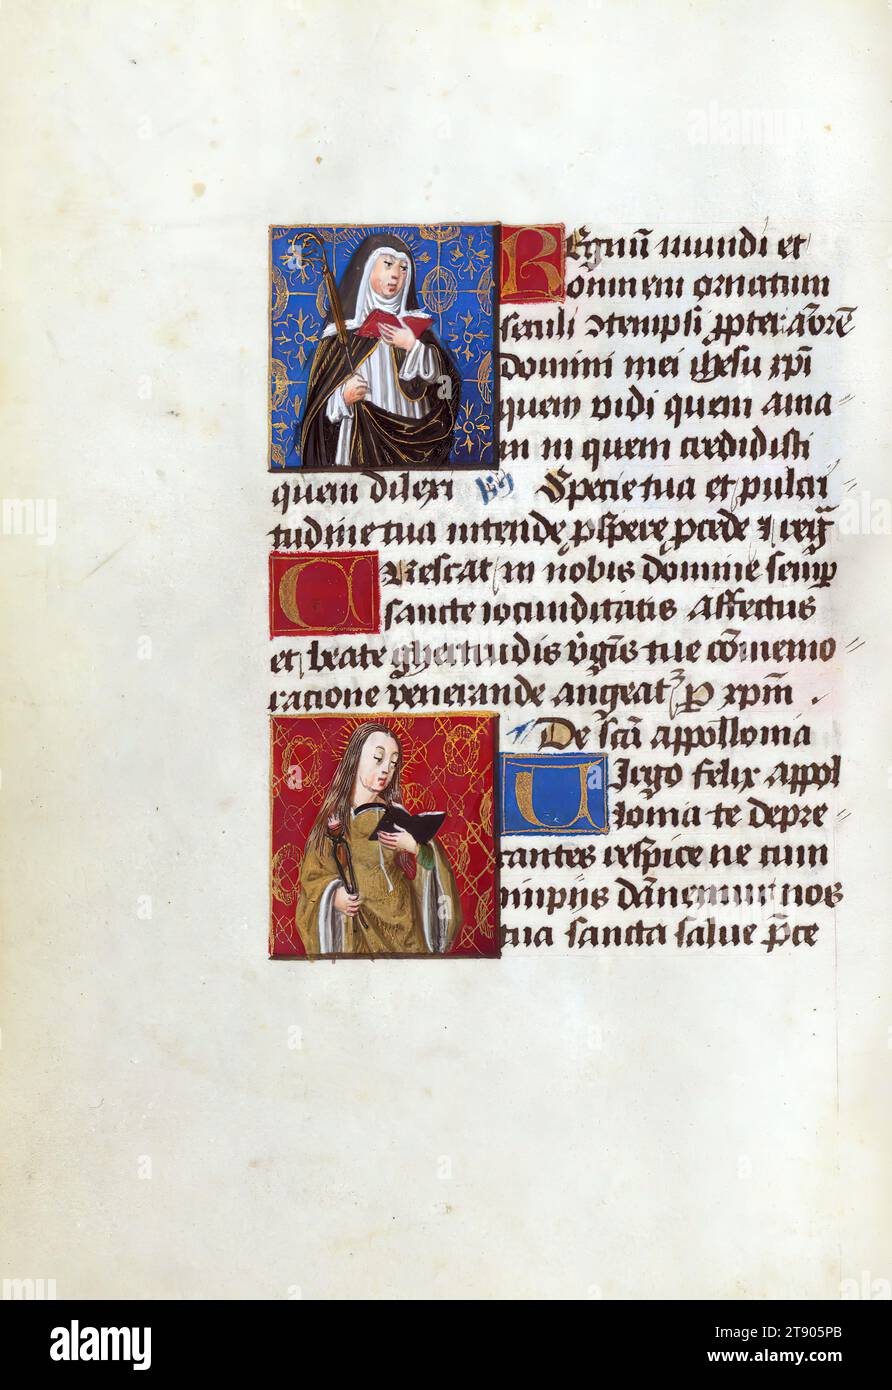 Regnū mundi et
omnem ornatum
seculi ↄtempsi ꝓpter amorē
domini mei ihesu xp̄i
quem vidi quem ama
in quem credidisti
quem dilexi Specie tua et pulcri
tudine tua intende ꝓspere ꝓcede ⁊ reg̃
Crescat in nobis domine semꝑ
sancte iocunditatis affectus
et beate ghertrudis v̄gīs tue cōmemo
ratione venerande augeatᷣ ꝑ xp̄m .
De s̄cā appollonia
Virgo felix appol
lonia te depre
cantes respice ne cum
impijs dānemur nos
tua sancta salue p̄ce
alamy
Image ID: 2T905PB
www.alamy.com